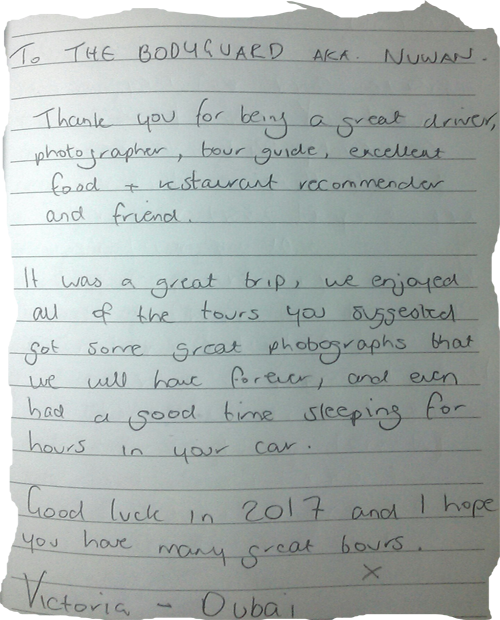 To THE BODYGUARD AKA. NUWAN.
Thank you for being a great driver,
photographer, tour guide, excellent
food + restaurant recommender
and friend.
It was a great trip, we enjoyed
all of the tours you suggested
got some great photographs that
we will have forever, and even
had a good time sleeping for
hours in your car.
Good luck in 2017 and I hope
you have many great tours.
x
Victoria - Dubai